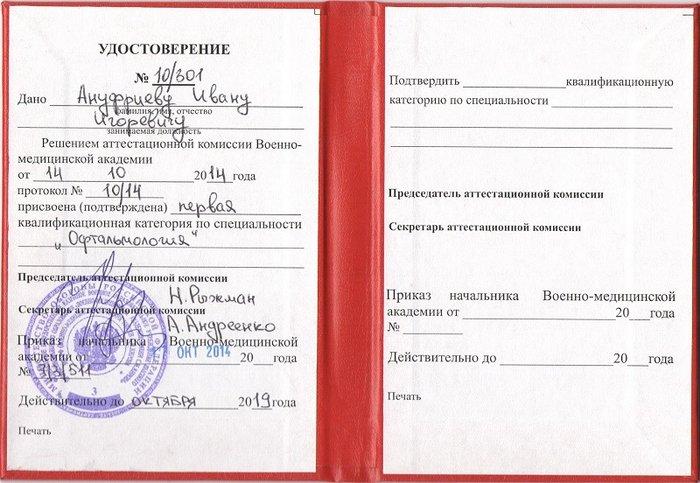 УДОСТОВЕРЕНИЕ
№ 10/301
Дано Ануфриеву Ивану
фамилия, имя, отчество
Игоревичу
занимаемая должность
Решением аттестационной комиссии Военно-
медицинской академии
от 14 10 2014 года
протокол № 10/14
присвоена (подтверждена) первая
квалификационная категория по специальности
"Офтальмология"
Председатель аттестационной комиссии
Н. Рыжман
Секретарь аттестационной комиссии
А. Андреенко
Приказ начальника Военно-медицинской
академии от ОКТ 2014 20 года
№ 313/511
Действительно до ОКТЯБРЯ 2019 года
Печать
Подтвердить квалификационную
категорию по специальности
Председатель аттестационной комиссии
Секретарь аттестационной комиссии
Приказ начальника Военно-медицинской
академии от 20 года
№
Действительно до 20 года
Печать